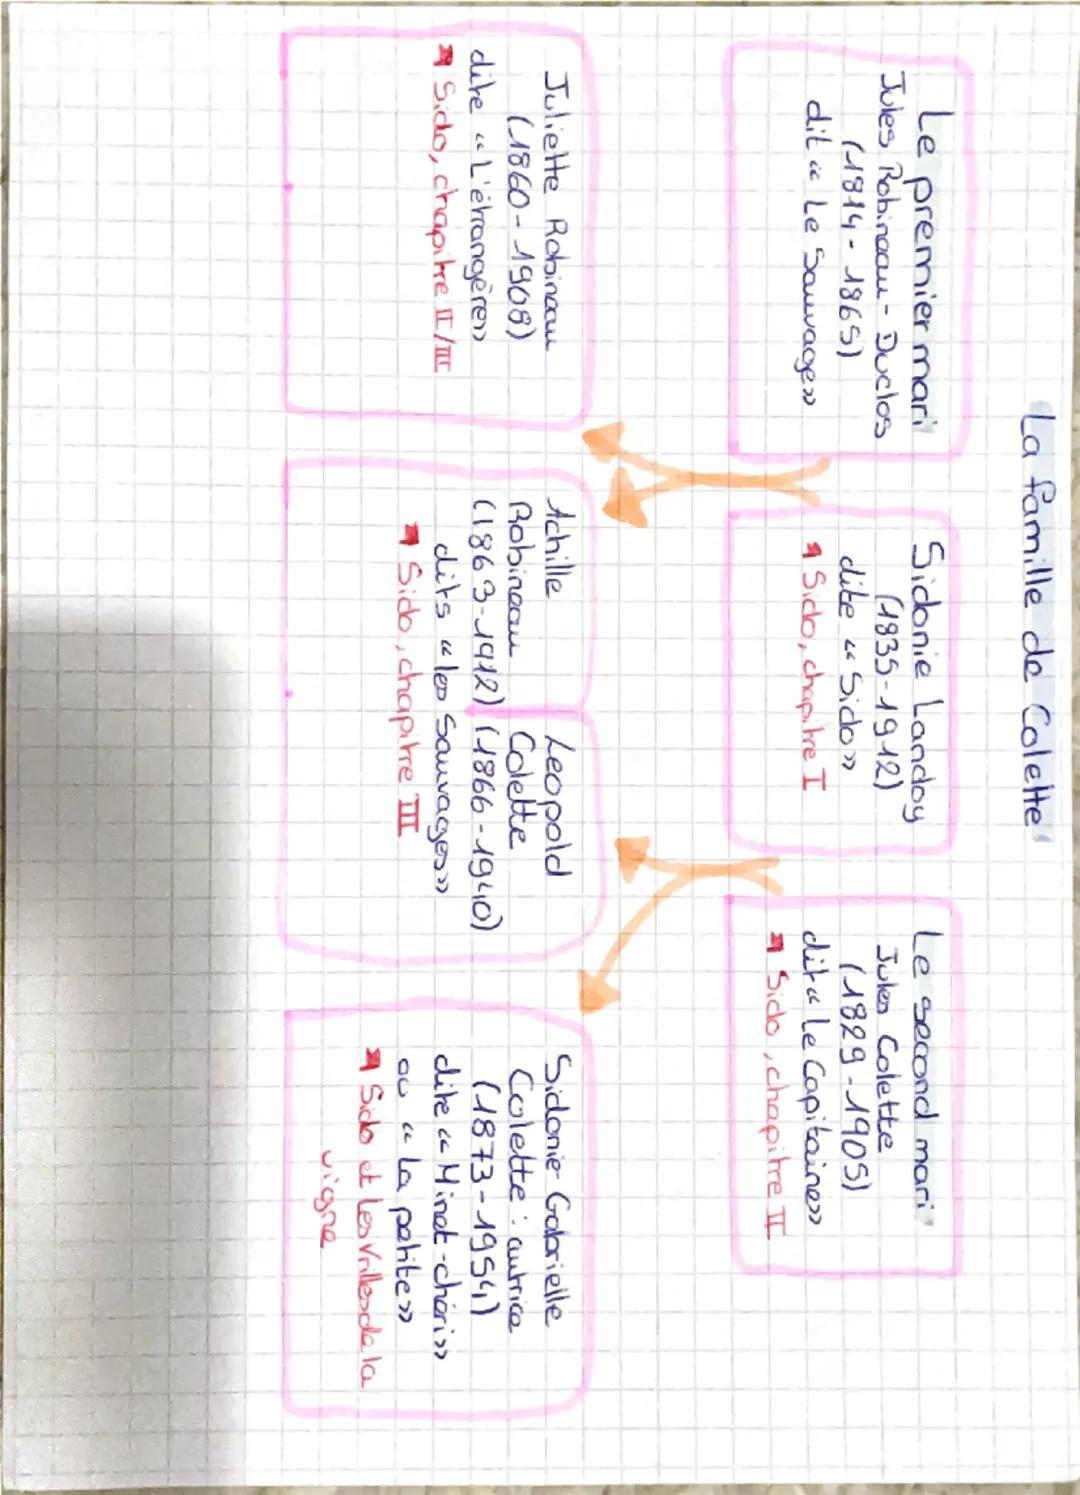 La famille de Colette
Le premier mari
Jules Robineau-Duclos
(1814-1865)
dit « Le Sauvage »
Sidonie Landoy
(1835-1912)
dite « Sido »
Sido, chapitre I
Le second mari
Jules Colette
(1829-1905)
dit « Le Capitaine »
Sido, chapitre II
Juliette Robineau
(1860-1908)
dite « L'étrangère »
Sido, chapitre II/III
Achille
Robineau
(1863-1912)
Leopold
Colette
(1866-1940)
dits « les Sauvages »
Sido, chapitre III
Sidonie-Gabrielle
Colette : autrice
(1873-1954)
dite « Minet-chéri »
ou « La petite »
Sido et Les Vrilles de la
vigne